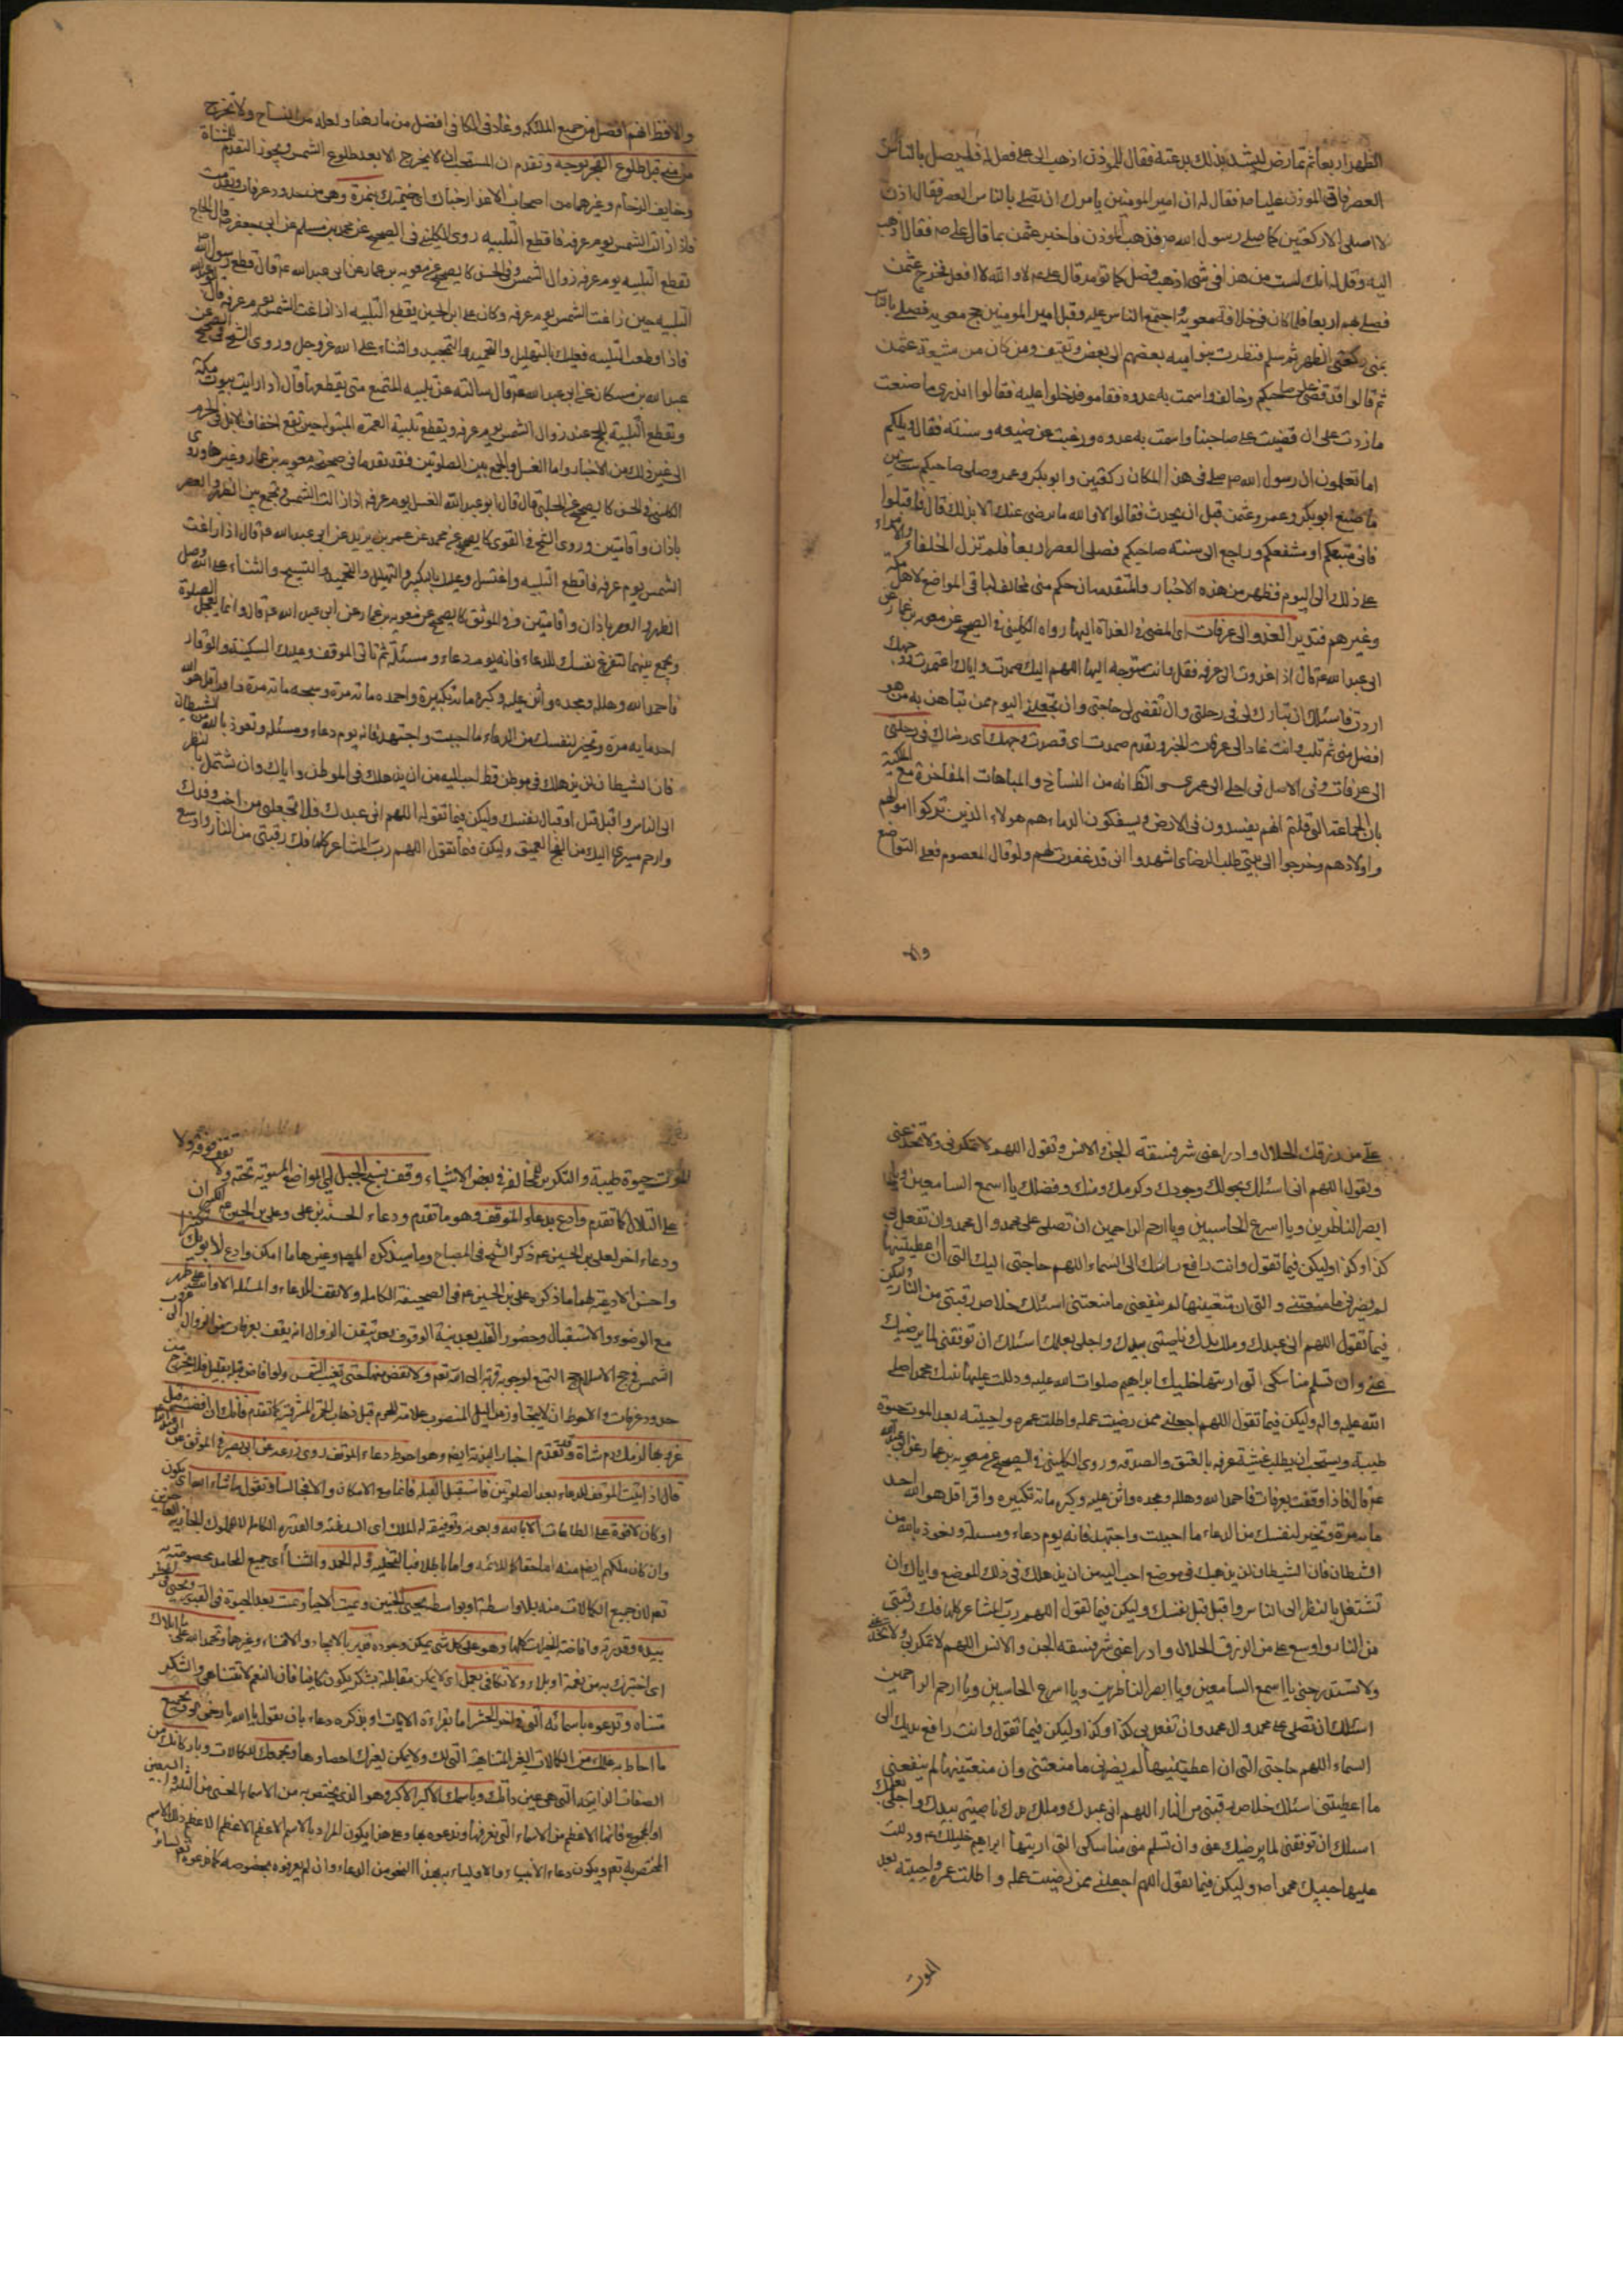 الظهر اربعا ثم تمارض ليشد بذلك بدعته فقال للموذن اذهب الى على فقل له فليصل بالناس
العصر فاتى الموذن عليا ص فقال له ان امير المومنين يامرك ان تصلى بالناس العصر فقال اذن
لا اصلى الا ركعتين كما صلى رسول الله ص فذهب الموذن فاخبر عثمن بما قال على ص فقال اذهب
اليه وقل له انك لست من هذا فى شئ اذهب فصل كما تومر قال على ع لا والله لا افعل فخرج عثمن
فصلى بهم اربعا فلما كان فى خلافة معوية واجتمع الناس عليه وقتل امير المومنين حج معوية فصلى بالناس
بمنى ركعتى الظهر ثم سلم فنظرت بنو اميه بعضهم الى بعض وثقيف ومن كان من شيعة عثمن
ثم قالوا قد قضى على صاحبكم وخالف واشمت به عدوه فقاموا فدخلوا عليه فقالوا اتدرى ما صنعت
ما زدت على ان قضيت على صاحبنا واشمت به عدوه ورغبت عن صنيعه وسنته فقال ويلكم
اما تعلمون ان رسول الله ص صلى فى هذا المكان ركعتين وابوبكر وعمر وصلى صاحبكم ست سنين
ما صنع ابوبكر وعمر وعثمن قبل ان يحدث فقالوا لا والله ما نرضى عنك الا بذلك قال فاقبلوا
فانى متبعكم او مشفعكم وراجع الى سنة صاحبكم فصلى العصر اربعا فلم تزل الخلفاء والامراء
على ذلك الى اليوم فظهر من هذه الاخبار والمتقدمة ان حكم منى مخالف لباقى المواضع لاهل مكة
وغيرهم فتدبر الغدو الى عرفات اى المضى فى الغداة اليها رواه الكلينى فى الصحيح عن معوية بن عمار عن
ابى عبد الله ع قال اذا غدوت الى عرفة فقل وانت متوجه اليها اللهم اليك صمدت واياك اعتمدت ووجهك
اردت فاسئلك ان تبارك لى فى رحلتى وان تقضى لى حاجتى وان تجعلنى اليوم ممن تباهى به من هو
افضل منى ثم تلب وانت غاد الى عرفات الخبر وتقدم صمدت اى قصدت وجهك اى رضاك فى رحلتى
الى عرفات وفى الاصل فى اجلى الى عمرى والظ انه من النساخ والمباهات المفاخرة مع الملئكة
بان الجماعة التى قلتم انهم يفسدون فى الارض ويسفكون الدماء هم هولاء الذين تركوا اموالهم
واولادهم وخرجوا الى بيتى طلب الرضاى اشهدوا انى قد غفرت لهم ولو قال المعصوم فعلى التواضع
والا
والا فظ انهم افضل من جميع الملئكة وغاد فى الكافى افضل من مار هنا ولعله من النساخ ولا تخرج
من منى قبل طلوع الفجر بوجه وتقدم ان المستحب ان لا يخرج الا بعد طلوع الشمس ويجوز التقدم للمشاة
وخايف الزحام وغيرهما من اصحاب الاعذار خباك اى خيمتك بنمرة وهى من حدود عرفات وتقدمت
فاذا زالت الشمس يوم عرفة فاقطع التلبيه روى الكلينى فى الصحيح عن محمد بن مسلم عن ابى جعفر ص قال الحاج
تقطع التلبيه يوم عرفه زوال الشمس وفى الحسن كالصحيح عن معويه بن عمار عن ابى عبد الله ع قال قطع رسول الله ص
التلبيه حين زاغت الشمس يوم عرفه وكان على بن الحسين يقطع التلبيه اذا زاغت الشمس يوم عرفه قال ابو عبد الله
فاذا قطعت التلبيه فعليك بالتهليل والتحميد والتمجيد والثناء على الله عز وجل وروى الشيخ فى الصحيح عن
عبد الله بن مسكان عن ابى عبد الله ع قال سالته عن تلبيه المتمتع متى يقطعها قال اذا رايت بيوت مكة
ويقطع التلبية للحج عند زوال الشمس يوم عرفه ويقطع تلبية العمرة المبتوله حين تقع اخفاف الابل فى الحرم
الى غير ذلك من الاخبار واما الغسل والجمع بين الصلوتين فقد تقدما فى صحيحة معويه بن عمار وغيرها وروى
الكلينى فى الحسن كالصحيح عن الحلبى قال قال ابو عبد الله الغسل يوم عرفه اذا زالت الشمس وتجمع بين الظهر والعصر
باذان واقامتين وروى الشيخ فى القوى كالصحيح عن محمد عن عمر بن يزيد عن ابى عبد الله ع قال اذا زاغت
الشمس يوم عرفه فاقطع التلبيه واغتسل وعليك بالتكبير والتهليل والتحميد والتسبيح والثناء على الله وصل
الظهر والعصر باذان واقامتين وفى الموثق كالصحيح عن معويه بن عمار عن ابى عبد الله ع قال وانما يعجل الصلوة
ويجمع بينهما لتفرغ نفسك للدعاء فانه يوم دعاء ومسئلة ثم تاتى الموقف وعليك السكينة والوقار
فاحمد الله وهلله ومجده واثن عليه وكبره مائة تكبيرة واحمده مائه مرة وسبحه مائه مرة واقرا قل هو الله
احد مايه مرة وتخير لنفسك من الدعاء ما احببت واجتهد فانه يوم دعاء ومسئله وتعوذ بالله من الشيطان
فان الشيطان لن يذهلك فى موطن قط احب اليه من ان يذهلك فى الموطن واياك وان تشتمل بالنظر
الى الناس واقبل قبل نفسك وليكن فيما تقوله اللهم انى عبدك فلا تجعلنى من اخيب وفدك
وارحم مسيرى اليك من الفج العميق وليكن فيما تقول اللهم رب المشاعر كلها فك رقبتى من النار واوسع
على من رزقك الحلال وادرا عنى شر فسقة الجن والانس وتقول اللهم لا تمكر بى ولا تخدعنى
وتقول اللهم انى اسئلك بحولك وجودك وكرمك ومنك وفضلك يا اسمع السامعين ويا
ابصر الناظرين ويا اسرع الحاسبين ويا ارحم الراحمين ان تصلى على محمد وال محمد وان تفعل بى
كذا وكذا وليكن فيما تقول وانت رافع راسك الى السماء اللهم حاجتى اليك التى ان اعطيتنيها
لم يضرنى ما منعتنى والتى ان منعتنيها لم ينفعنى ما منعتنى اسئلك خلاص رقبتى من النار وليكن
فيما تقول اللهم انى عبدك وملك يدك ناصيتى بيدك واجلى بعلمك اسئلك ان توفقنى لما يرضيك
عنى وان تسلم مناسكى التى اريتها خليلك ابراهيم صلوات الله عليه ودللت عليها نبيك محمدا صلى
الله عليه واله وليكن فيما تقول اللهم اجعلنى ممن رضيت عمله واطلت عمره واحييته بعد الموت حيوة
طيبة ويستحب ان يطلب عشية عرفه بالعتق والصدقه وروى الكلينى فى الصحيح عن معويه بن عمار عن ابى عبد الله
ع قال فاذا وقفت بعرفات فاحمد الله وهلله ومجده واثن عليه وكبره مائه تكبيره واقرا قل هو الله احد
مايه مرة وتخير لنفسك من الدعاء ما احببت واجتهد فانه يوم دعاء ومسئلة وتعوذ بالله من
الشيطان فان الشيطان لن يذهلك فى موضع احب اليه من ان يذهلك فى ذلك الموضع واياك ان
تشتغل بالنظر الى الناس واقبل قبل نفسك وليكن فيما تقول اللهم رب المشاعر كلها فك رقبتى
من النار واوسع على من الرزق الحلال وادرا عنى شر فسقه الجن والانس اللهم لا تمكر بى ولا تخدعنى
ولا تستدرجنى يا اسمع السامعين ويا ابصر الناظرين ويا اسرع الحاسبين ويا ارحم الراحمين
اسئلك ان تصلى على محمد وال محمد وان تفعل بى كذا وكذا وليكن فيما تقول وانت رافع يديك الى
السماء اللهم حاجتى التى ان اعطيتنيها لم يضرنى ما منعتنى وان منعتنيها لم ينفعنى
ما اعطيتنى اسئلك خلاص رقبتى من النار اللهم انى عبدك وملك يدك ناصيتى بيدك واجلى بعلمك
اسئلك ان توفقنى لما يرضيك عنى وان تسلم منى مناسكى التى اريتها ابراهيم خليلك ع ودللت
عليها حبيبك محمدا ص وليكن فيما تقول اللهم اجعلنى ممن رضيت عمله واطلت عمره واحييته بعد
الموت
الموت حيوة طيبة والتكرير للمخالفه فى بعض الاشياء وقف بسفح الجبل اى المواضع المستويه تحته ولا تقف فوقه ولا
على التلال كما تقدم وادع بدعاء الموقف وهو ما تقدم ودعاء الحسين بن على وعلى بن الحسين ع
ودعاء اخر لعلى بن الحسين ع ذكر الشيخ فى المصباح وما سيذكره المصـ وغيرها ما امكن وادع لابويك
واحسن الادعية لهما ما ذكره على بن الحسين ع فى الصحيفة الكامله ولا تقف للدعاء والمسئله الا وانت على طهر
مع الوضوء والاستقبال وحضور القلب بعد نية الوقوف بعد تيقن الزوال انه يقف بعرفات من الزوال الى غروب
الشمس فى حج الاسلام حج التمتع لوجوبه قربة الى الله تعم ولا تفض منها حتى تغيب الشمس ولو افاض قبله بقليل فلا يخرج من
حدود عرفات والاحوط ان لا يتجاوز من الميل المنصوب علامة للحرم قبل ذهاب الحمرة المشرقية كما تقدم فانك ان افضت قبل
غروبها لزمك دم شاة وقد تقدم اخبار البدنة ايضا وهو احوط دعاء الموقف روى زرعه عن ابى بصير فى الموثق عن
قال اذا اتيت الموقف للدعاء بعد الصلوتين فاستقبل القبله قائما مع الامكان والا فجالسا وتقول ما شاء الله اى يكون
او كان لا قوة على الطاعات الا بالله وبعونه وتوفيقه له الملك اى السلطنة والقدرة الكاملة
وان كان ملكهم ايضا منه اما حقا كالائمه واما باطلا فبالتخليه وله الحمد والثناء اى جميع المحامد
تعم لان جميع الكمالات منه بلا واسطة او بواسطه يحيى الجنين ويميت الاحياء ويميت بعد الحيوة فى القبر ويحيى فى
بيده وقدرته وافاضة الخيرات كلها وهو على كل شئ يمكن وجوده قدير بالايجاد والافناء وغيرهما وتحمد الله على
اى اختبرك به من نعمة او بلاء ولا تكافى بعمل اى لا يمكن مقابلته بشكر يكون مكافيا فان النعم لا تتناهى والشكر
متناه وتدعوه باسمائه التى فى اخر الحشر اما بقراءة الايات او بذكره دعاء بان يقول يا الله يا رحمن
ما احاط به علمك من الكمالات الغير المتناهية التى لك ولا يمكن لغيرك احصاوها وبجمعك للكمالات وباركانك من
الصفات الذاتية التى هى عين ذاتك وباسمك الاكبر الاكبر وهو الذى يختص به من الاسماء الحسنى
او المجموع فانها الاعظم من الاسماء التى نعرفها وندعوه بها وعلى هذا يكون المراد بالاسم الاعظم الاعظم الاعظم ذلك الاسم
المختص به تعم ويكون دعاء الانبياء والاولياء بهذا النحو من الدعاء وان لم يعرفوه بخصوصه كما تدعوه